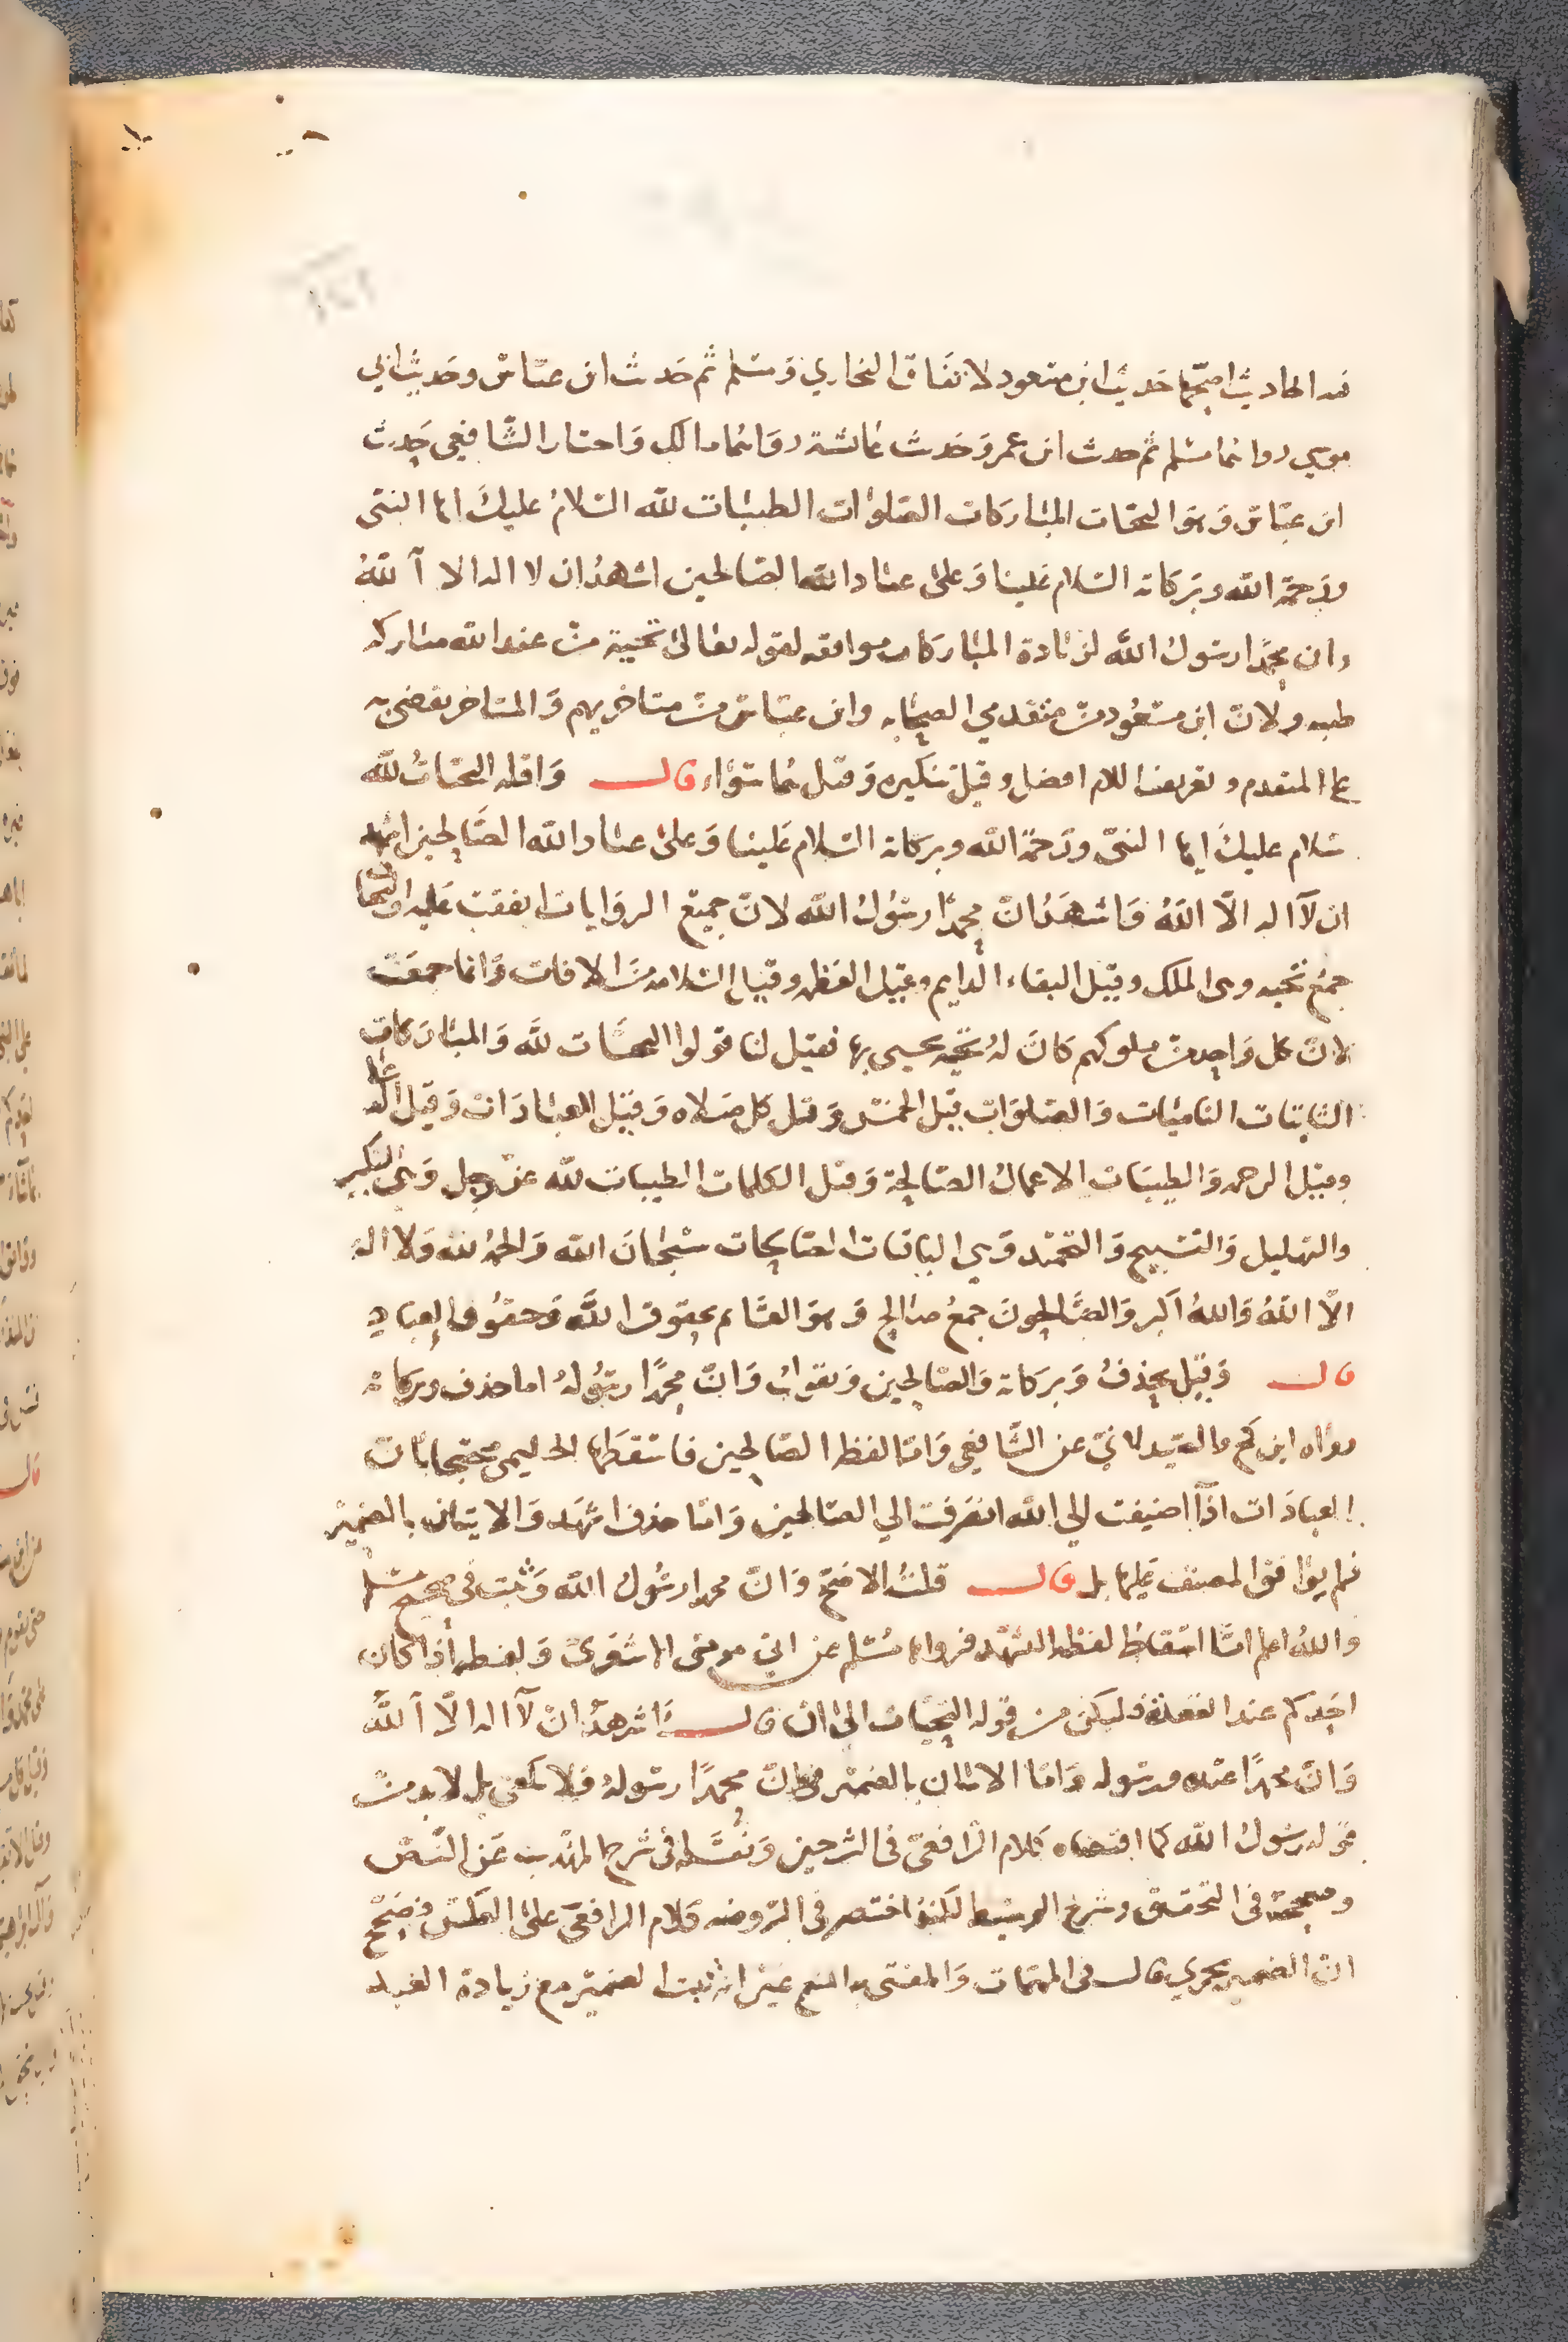 فيه احاديث اصحها حديث ابن مسعود لاتفاق البخاري ومسلم ثم حديث ابن عباس وحديث ابي
موسى رواهما مسلم ثم حديث ابن عمر وحديث عائشة رواهما مالك واختار الشافعي حديث
ابن عباس وهو التحيات المباركات الصلوات الطيبات لله السلام عليك ايها النبي
ورحمة الله وبركاته السلام علينا وعلى عباد الله الصالحين اشهد ان لا اله الا الله
وان محمدا رسول الله لزيادة المباركات موافقه لقوله تعالى تحية من عند الله مباركه
طيبه ولان ابن مسعود من متقدمي الصحابه وابن عباس من متاخريهم والمتاخر يقضى به
على المتقدم وتعريف السلام افضل وقيل تنكيره وقيل هما سواء قال واقله التحيات لله
سلام عليك ايها النبي ورحمة الله وبركاته السلام علينا وعلى عباد الله الصالحين اشهد
ان لا اله الا الله واشهد ان محمدا رسول الله لان جميع الروايات اتفقت عليه والتحيات
جمع تحيه وهي الملك وقيل البقاء الدايم وقيل العظمه وقيل السلامه من الافات وانما جمعت
لان كل واحد من ملوكهم كان له تحيه يحيى بها فقيل لنا قولوا التحيات لله والمباركات
الثابتات الناميات والصلوات قيل الخمس وقيل كل صلاه وقيل العبادات وقيل الدعا
وقيل الرحمه والطيبات الاعمال الصالحة وقيل الكلمات الطيبات لله عز وجل وهي التكبير
والتهليل والتسبيح والتحميد وهي الباقيات الصالحات سبحان الله والحمد لله ولا اله
الا الله والله اكبر والصالحون جمع صالح وهو القائم بحقوق الله وحقوق العباد
قال وقيل يحذف وبركاته والصالحين ويقول وان محمدا رسوله اما حذف وبركاته
رواه ابن كج والصيدلاني عن الشافعي واما لفظ الصالحين فاسقطها الحليمي محتجا بان
العبادات اذا اضيفت الى الله انصرفت الي الصالحين واما حذف اشهد والاتيان بالضمير
فلم يوافق المصنف عليها بل قال قلت الاصح وان محمدا رسول الله وثبت في صحيح مسلم
والله اعلم اما اسقاط لفظة التشهد فرواه مسلم عن ابي موسى الاشعري ولفظه اذا كان
احدكم عند القعدة فليكن من قوله التحيات الى ان قال اشهد ان لا اله الا الله
وان محمدا عبده ورسوله واما الاتيان بالضمير في وان محمدا رسوله فلا يكفي بل لابد من
قوله رسول الله كما اقتضاه كلام الرافعي في الشرحين ونقله في شرح المهذب عن النص
وصححه في التحقيق وشرح الوسيط لكنه اختصر في الروضه كلام الرافعي على العكس فصحح
ان الضمير يجزي قال في المهمات والمفتى به المنع غير انه ثبت الضمير مع زيادة العبد